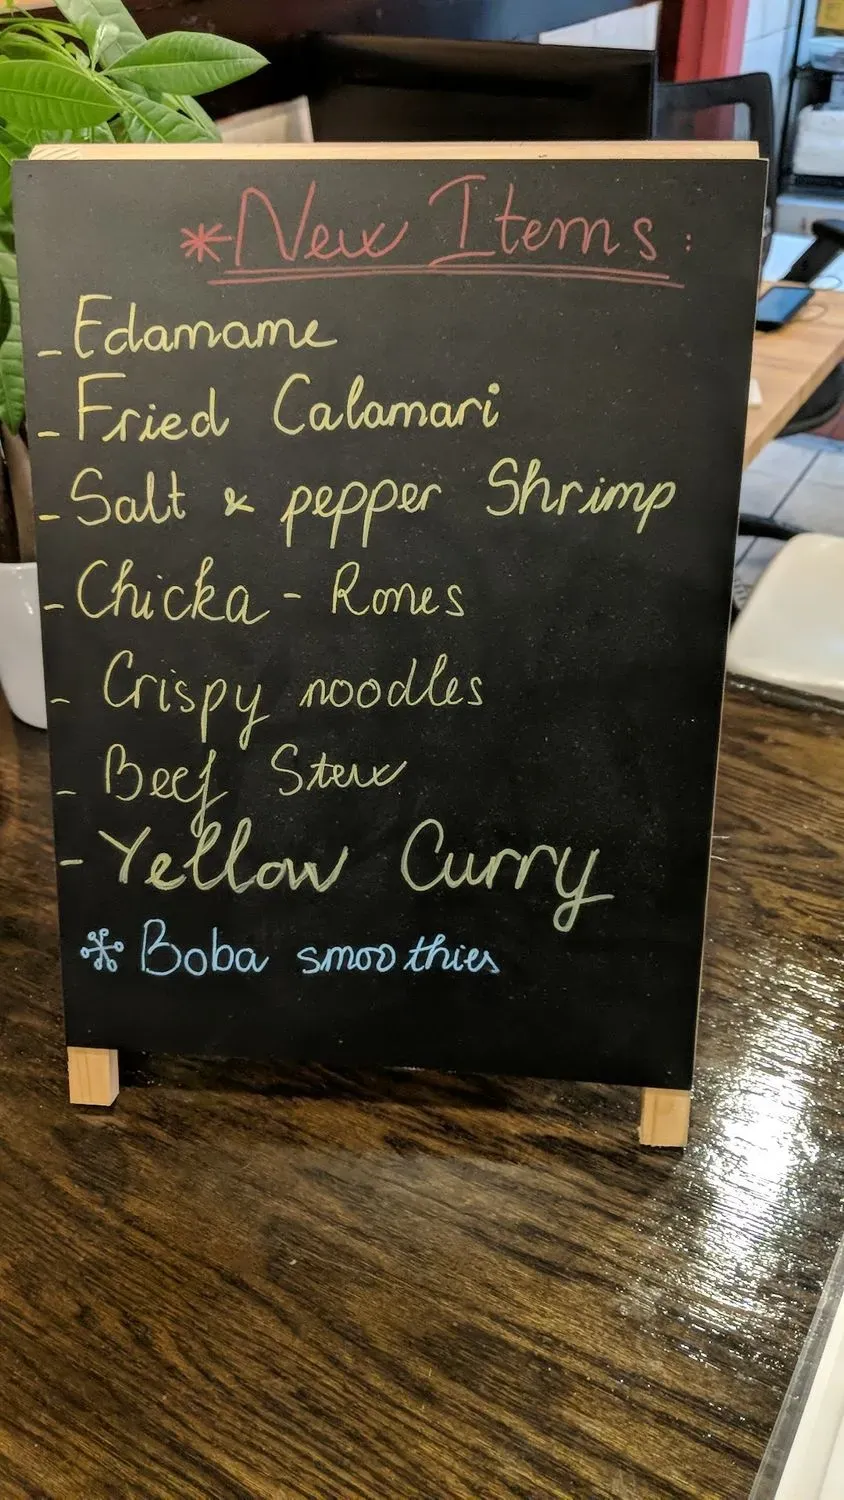 *New Items:
- Edamame
- Fried Calamari
- Salt & pepper Shrimp
- Chicka - Rones
- Crispy noodles
- Beef Stew
- Yellow Curry
* Boba smoothies